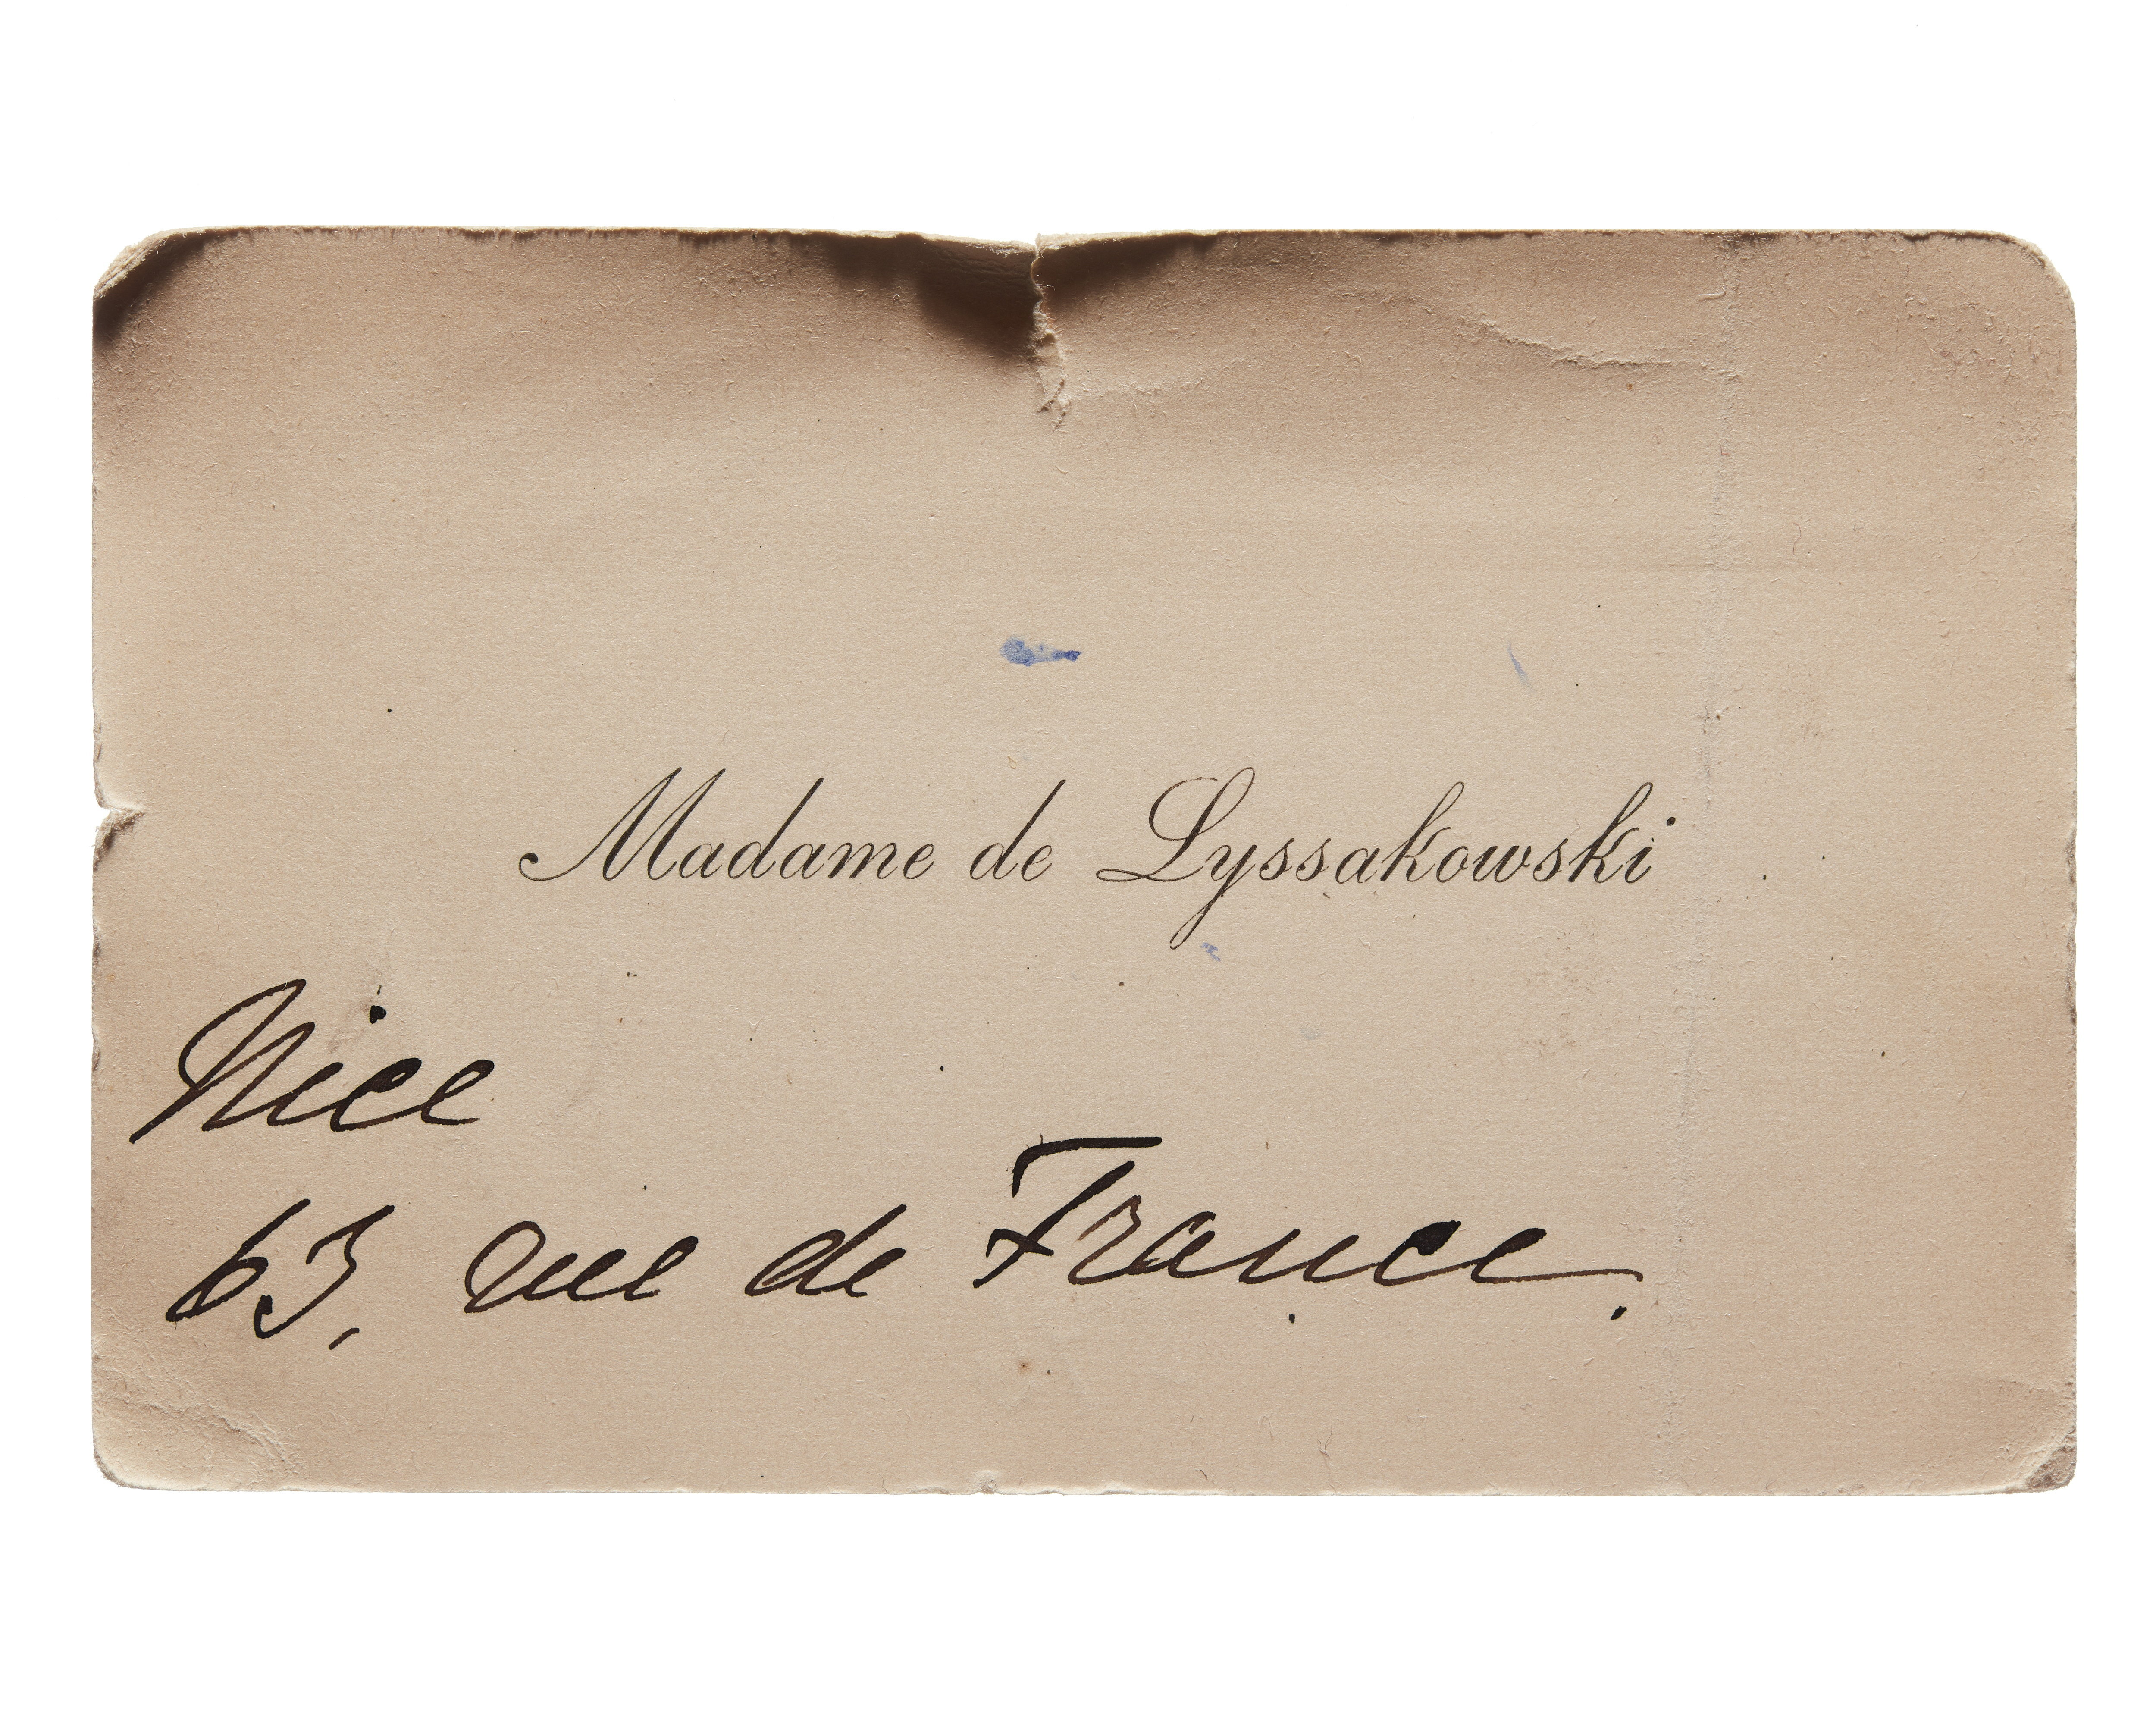 Madame de Lyssakowski
Nice
63, rue de France.